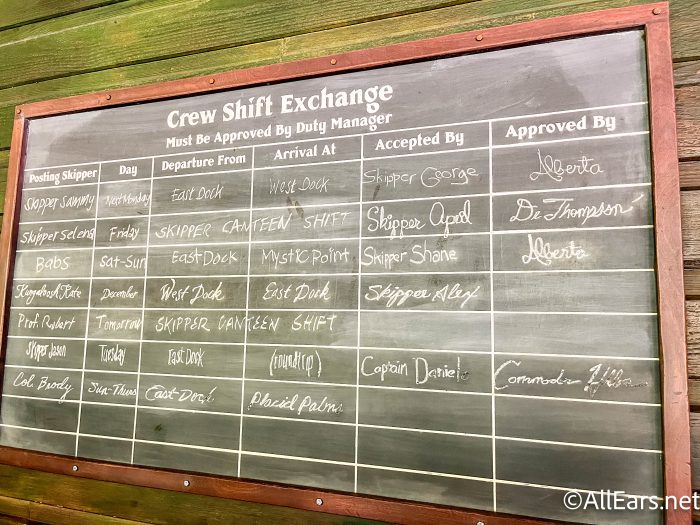 Crew Shift Exchange
Must Be Approved By Duty Manager
Posting Skipper Day Departure From Arrival At Accepted By Approved By
Skipper Sammy Next Monday East Dock West Dock Skipper George Alberta
Skipper Selena Friday SKIPPER CANTEEN SHIFT Skipper April De Thompson
Babs Sat-Sun East Dock Mystic Point Skipper Shane Alberta
Kungaloosh Kate December West Dock East Dock Skipper Alex
Prof. Robert Tomorrow SKIPPER CANTEEN SHIFT
Skipper Jason Tuesday East Dock (roundtrip) Captain Daniels
Col. Brody Sun-Thurs East Dock Placid Palms
©AllEars.net